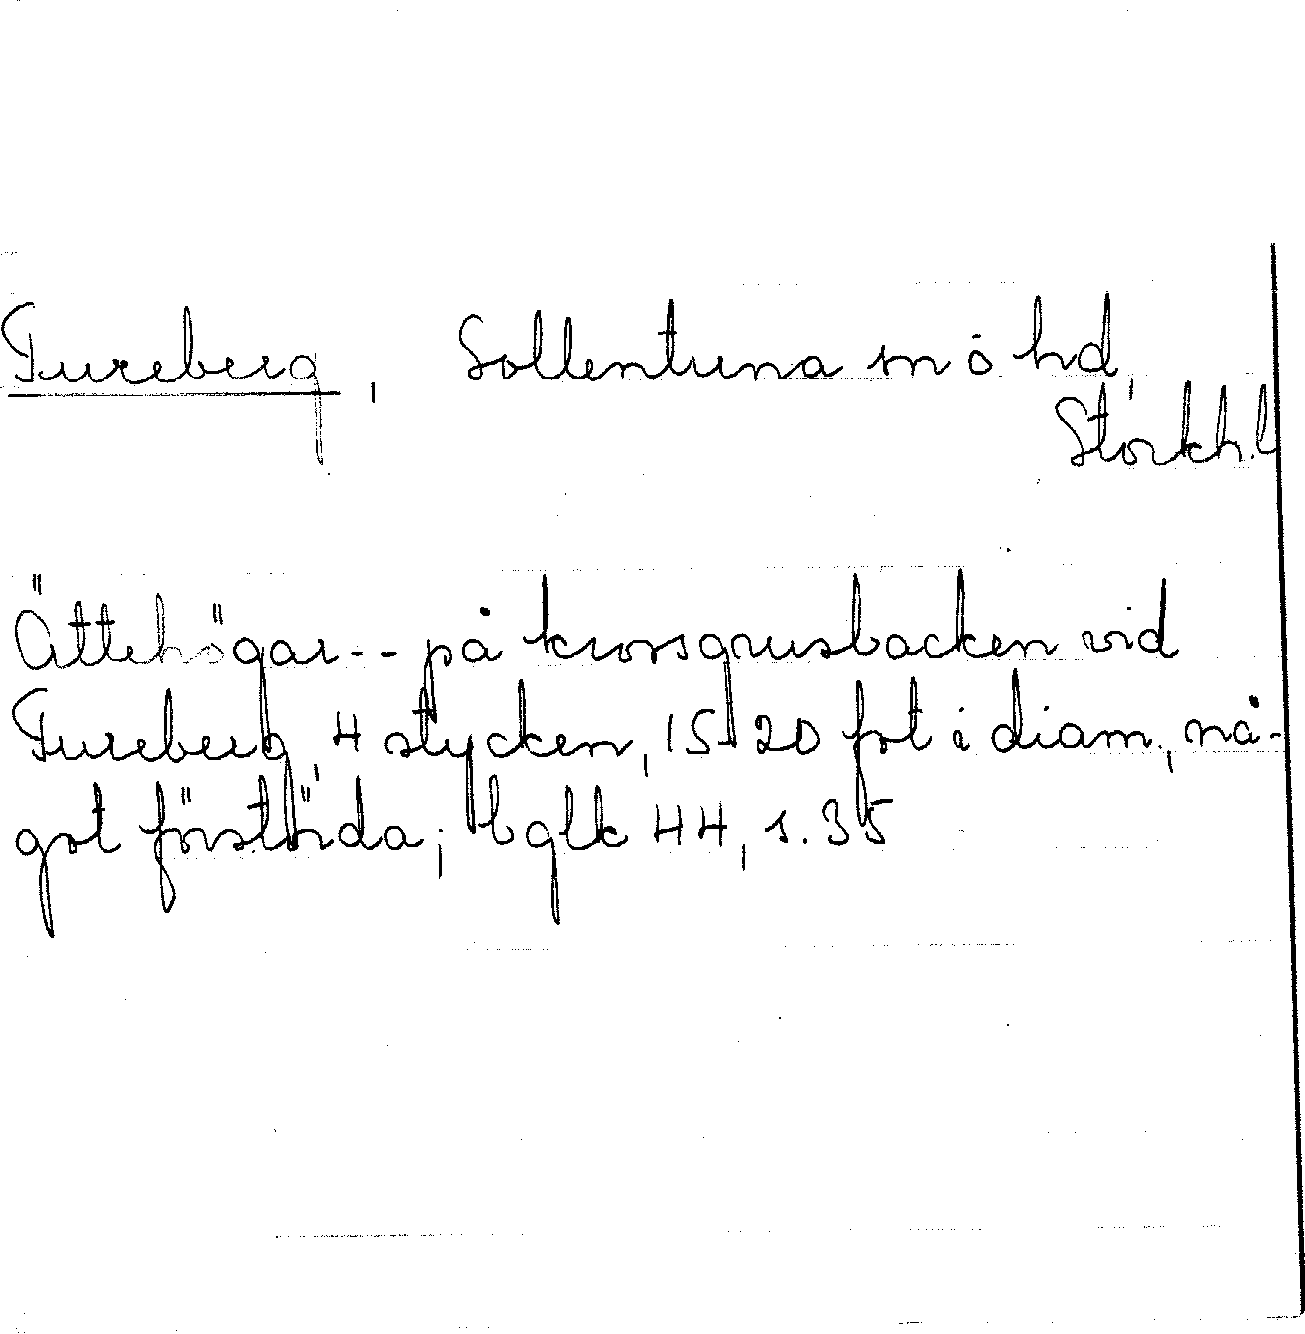 Tureberg, Sollentuna sn o hd,
Stockh.l
Ättehögar -- på krossgrusbacken vid
Tureberg, 4 stycken, 15-20 fot i diam., nå-
got förstörda; bglk 44, s. 35